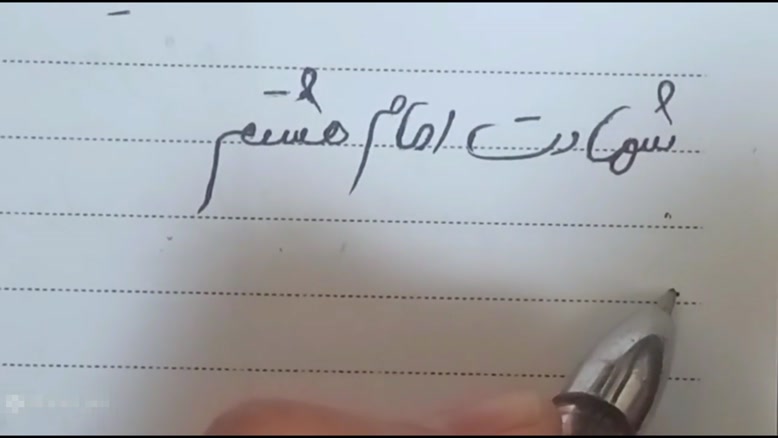 شهادت امام هشتم